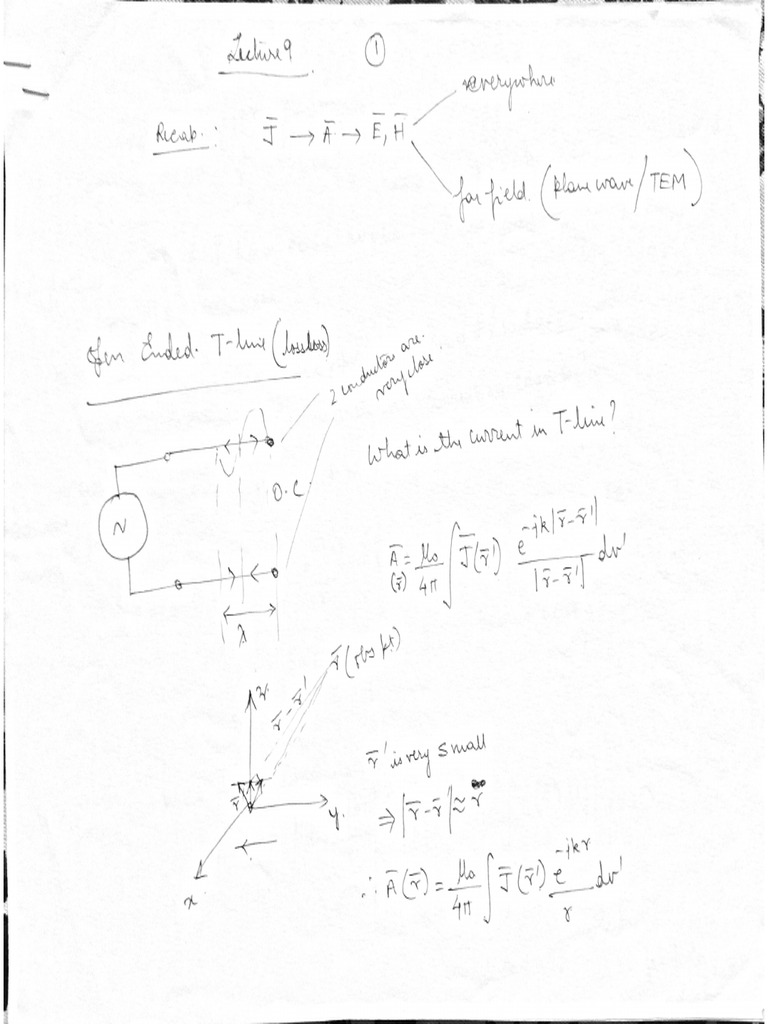 Lecture 9 ①
everywhere
Recap: J̄ → Ā → Ē, H̄
far field (plane wave/TEM)
Open Ended T-line (lossless)
2 conductors are
very close.
What is the current in T-line?
O.C.
N
Ā(r̄) = μ₀/4π ∫ J̄(r̄') e^{-jk|r̄-r̄'|}/|r̄-r̄'| dv'
λ
r̄ (obs pt)
r̄ - r̄'
r̄'
y
x
r̄' is very small
⇒ |r̄-r̄| ≈ r
∴ Ā(r̄) = μ₀/4π ∫ J̄(r̄') e^{-jkr}/r dv'